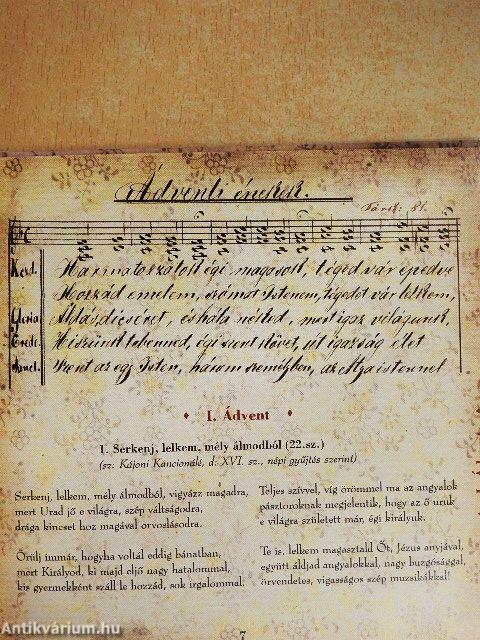 Ádventi énekek.
Kezd. Harmatozzatok égi magasok, téged vár epedve
Hozzád emelem, számat Istenem, tégedet vár lelkem,
Gloria Áldás, dicséret, és hála néked, mert igaz világunk,
Crede. Hiszünk tebenned, égi szent Ige, út igazság élet
Sanct. Szent az egy Isten, három személyben, az Atyaistennel
I. Ádvent
1. Serkenj, lelkem, mély álmodból (22.sz.)
(sz: Kájoni Kancionálé, d: XVI. sz., népi gyűjtés szerint)
Serkenj, lelkem, mély álmodból, vigyázz magadra,
mert Urad jő e világra, szép váltságodra,
drága kincset hoz magával orvoslásodra.
Örülj immár, hogyha voltál eddig bánatban,
mert Királyod, ki majd eljő nagy hatalommal,
kis gyermekként száll le hozzád, sok irgalommal.
Teljes szívvel, víg örömmel ma az angyalok
pásztoroknak megjelentik, hogy az ő uruk
e világra született már, égi királyuk.
Te is, lelkem magasztald Őt, Jézus anyjával,
együtt áldjad angyalokkal, nagy buzgósággal,
örvendetes, vigasságos szép muzsikákkal!
7
Antikvárium.hu